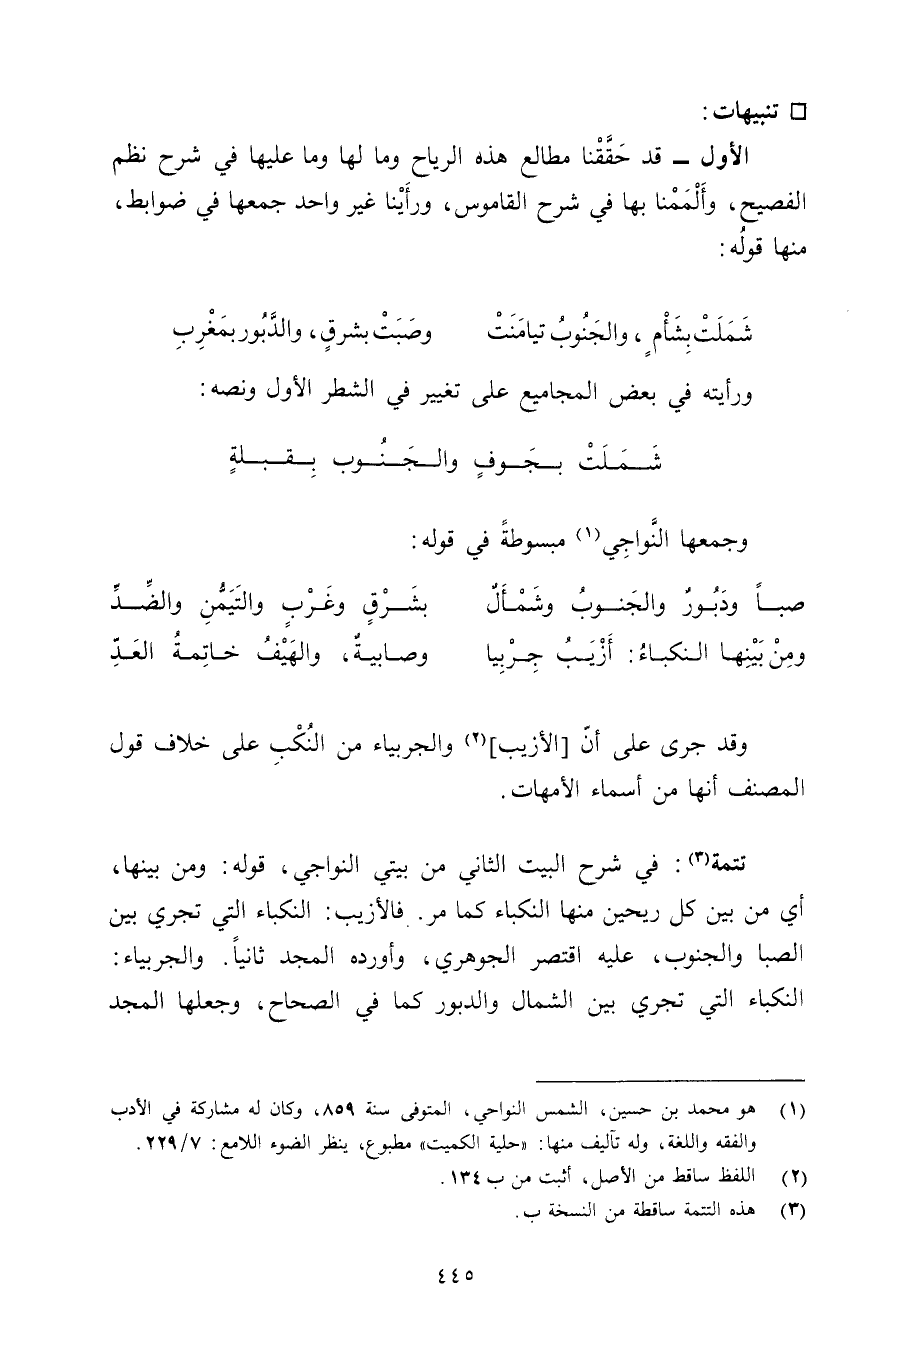 □ تنبيهات :
الأول ــ قد حَقَّقْنا مطالع هذه الرياح وما لها وما عليها في شرح نظم
الفصيح، وأَلْمَمْنا بها في شرح القاموس، ورأَيْنا غير واحد جمعها في ضوابط،
منها قولُه :
شَمَلَتْ بِشَأْمٍ ، والجَنُوبُ تيامَنَتْ وصَبَتْ بشرقٍ، والدَّبُور بمَغْرِبِ
ورأيته في بعض المجاميع على تغيير في الشطر الأول ونصه :
شَمَلَتْ بِجَوفٍ والجَنُوبِ بِقبلةٍ
وجمعها النَّواجِي(١) مبسوطةً في قوله :
صباً ودَبُورٌ والجَنوبُ وشَمْأَلٌ بشَرْقٍ وغَرْبٍ والتَيَمُّنِ والضِّدِّ
ومِنْ بَيْنِها النكباءُ : أَزْيَبُ جِرْبِيا وصابيةٌ، والهَيْفُ خاتِمةُ العَدِّ
وقد جرى على أنّ [الأزيب](٢) والجربياء من النُكْبِ على خلاف قول
المصنف أنها من أسماء الأمهات .
تتمة(٣) : في شرح البيت الثاني من بيتي النواجي، قوله : ومن بينها،
أي من بين كل ريحين منها النكباء كما مر. فالأزيب : النكباء التي تجري بين
الصبا والجنوب، عليه اقتصر الجوهري، وأورده المجد ثانياً. والجربياء :
النكباء التي تجري بين الشمال والدبور كما في الصحاح، وجعلها المجد
(١) هو محمد بن حسين، الشمس النواحي، المتوفى سنة ٨٥٩، وكان له مشاركة في الأدب
والفقه واللغة، وله تآليف منها : «حلية الكميت» مطبوع، ينظر الضوء اللامع : ٧/ ٢٢٩ .
(٢) اللفظ ساقط من الأصل، أثبت من ب ١٣٤ .
(٣) هذه التتمة ساقطة من النسخة ب .
٤٤٥